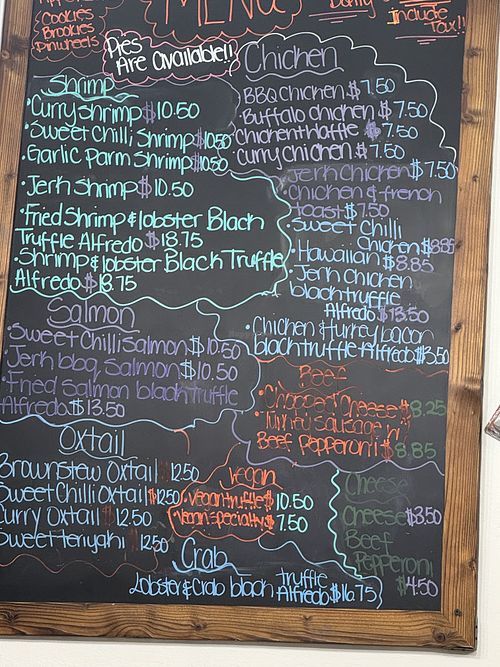 Cookies
Brookies
Pinwheels
MENU
Include
Tax!!
Pies
Are Available!!
Shrimp
·Curry Shrimp $10.50
·Sweet Chilli Shrimp $10.50
·Garlic Parm Shrimp $10.50
·Jerk Shrimp $10.50
·Fried Shrimp & lobster Black
Truffle Alfredo $18.75
·Shrimp & lobster Black Truffle
Alfredo $18.75
Salmon
·Sweet Chilli Salmon $10.50
·Jerk bbq Salmon $10.50
·Fried Salmon black truffle
Alfredo $13.50
Oxtail
Brownstew Oxtail 12.50
Sweet Chilli Oxtail $12.50
Curry Oxtail 12.50
Sweet teriyaki 12.50
Chicken
BBQ Chicken $7.50
·Buffalo chicken $7.50
Chicken Waffle $7.50
Curry Chicken $7.50
Jerk Chicken $7.50
Chicken & french
toast $7.50
·Sweet Chilli
Chicken $8.85
·Hawaiian $8.85
·Jerk Chicken
black truffle
Alfredo $13.50
·Chicken & turkey bacon
black truffle Alfredo $13.50
Beef
·Chopped Cheese $8.25
·Turkey Sausage n
Beef Pepperoni $8.85
Vegan
·Vegan truffle $10.50
·Vegan specialty $7.50
Cheese
Cheese $3.50
Beef
Pepperoni
$4.50
Crab
Lobster & Crab black truffle
Alfredo $16.75